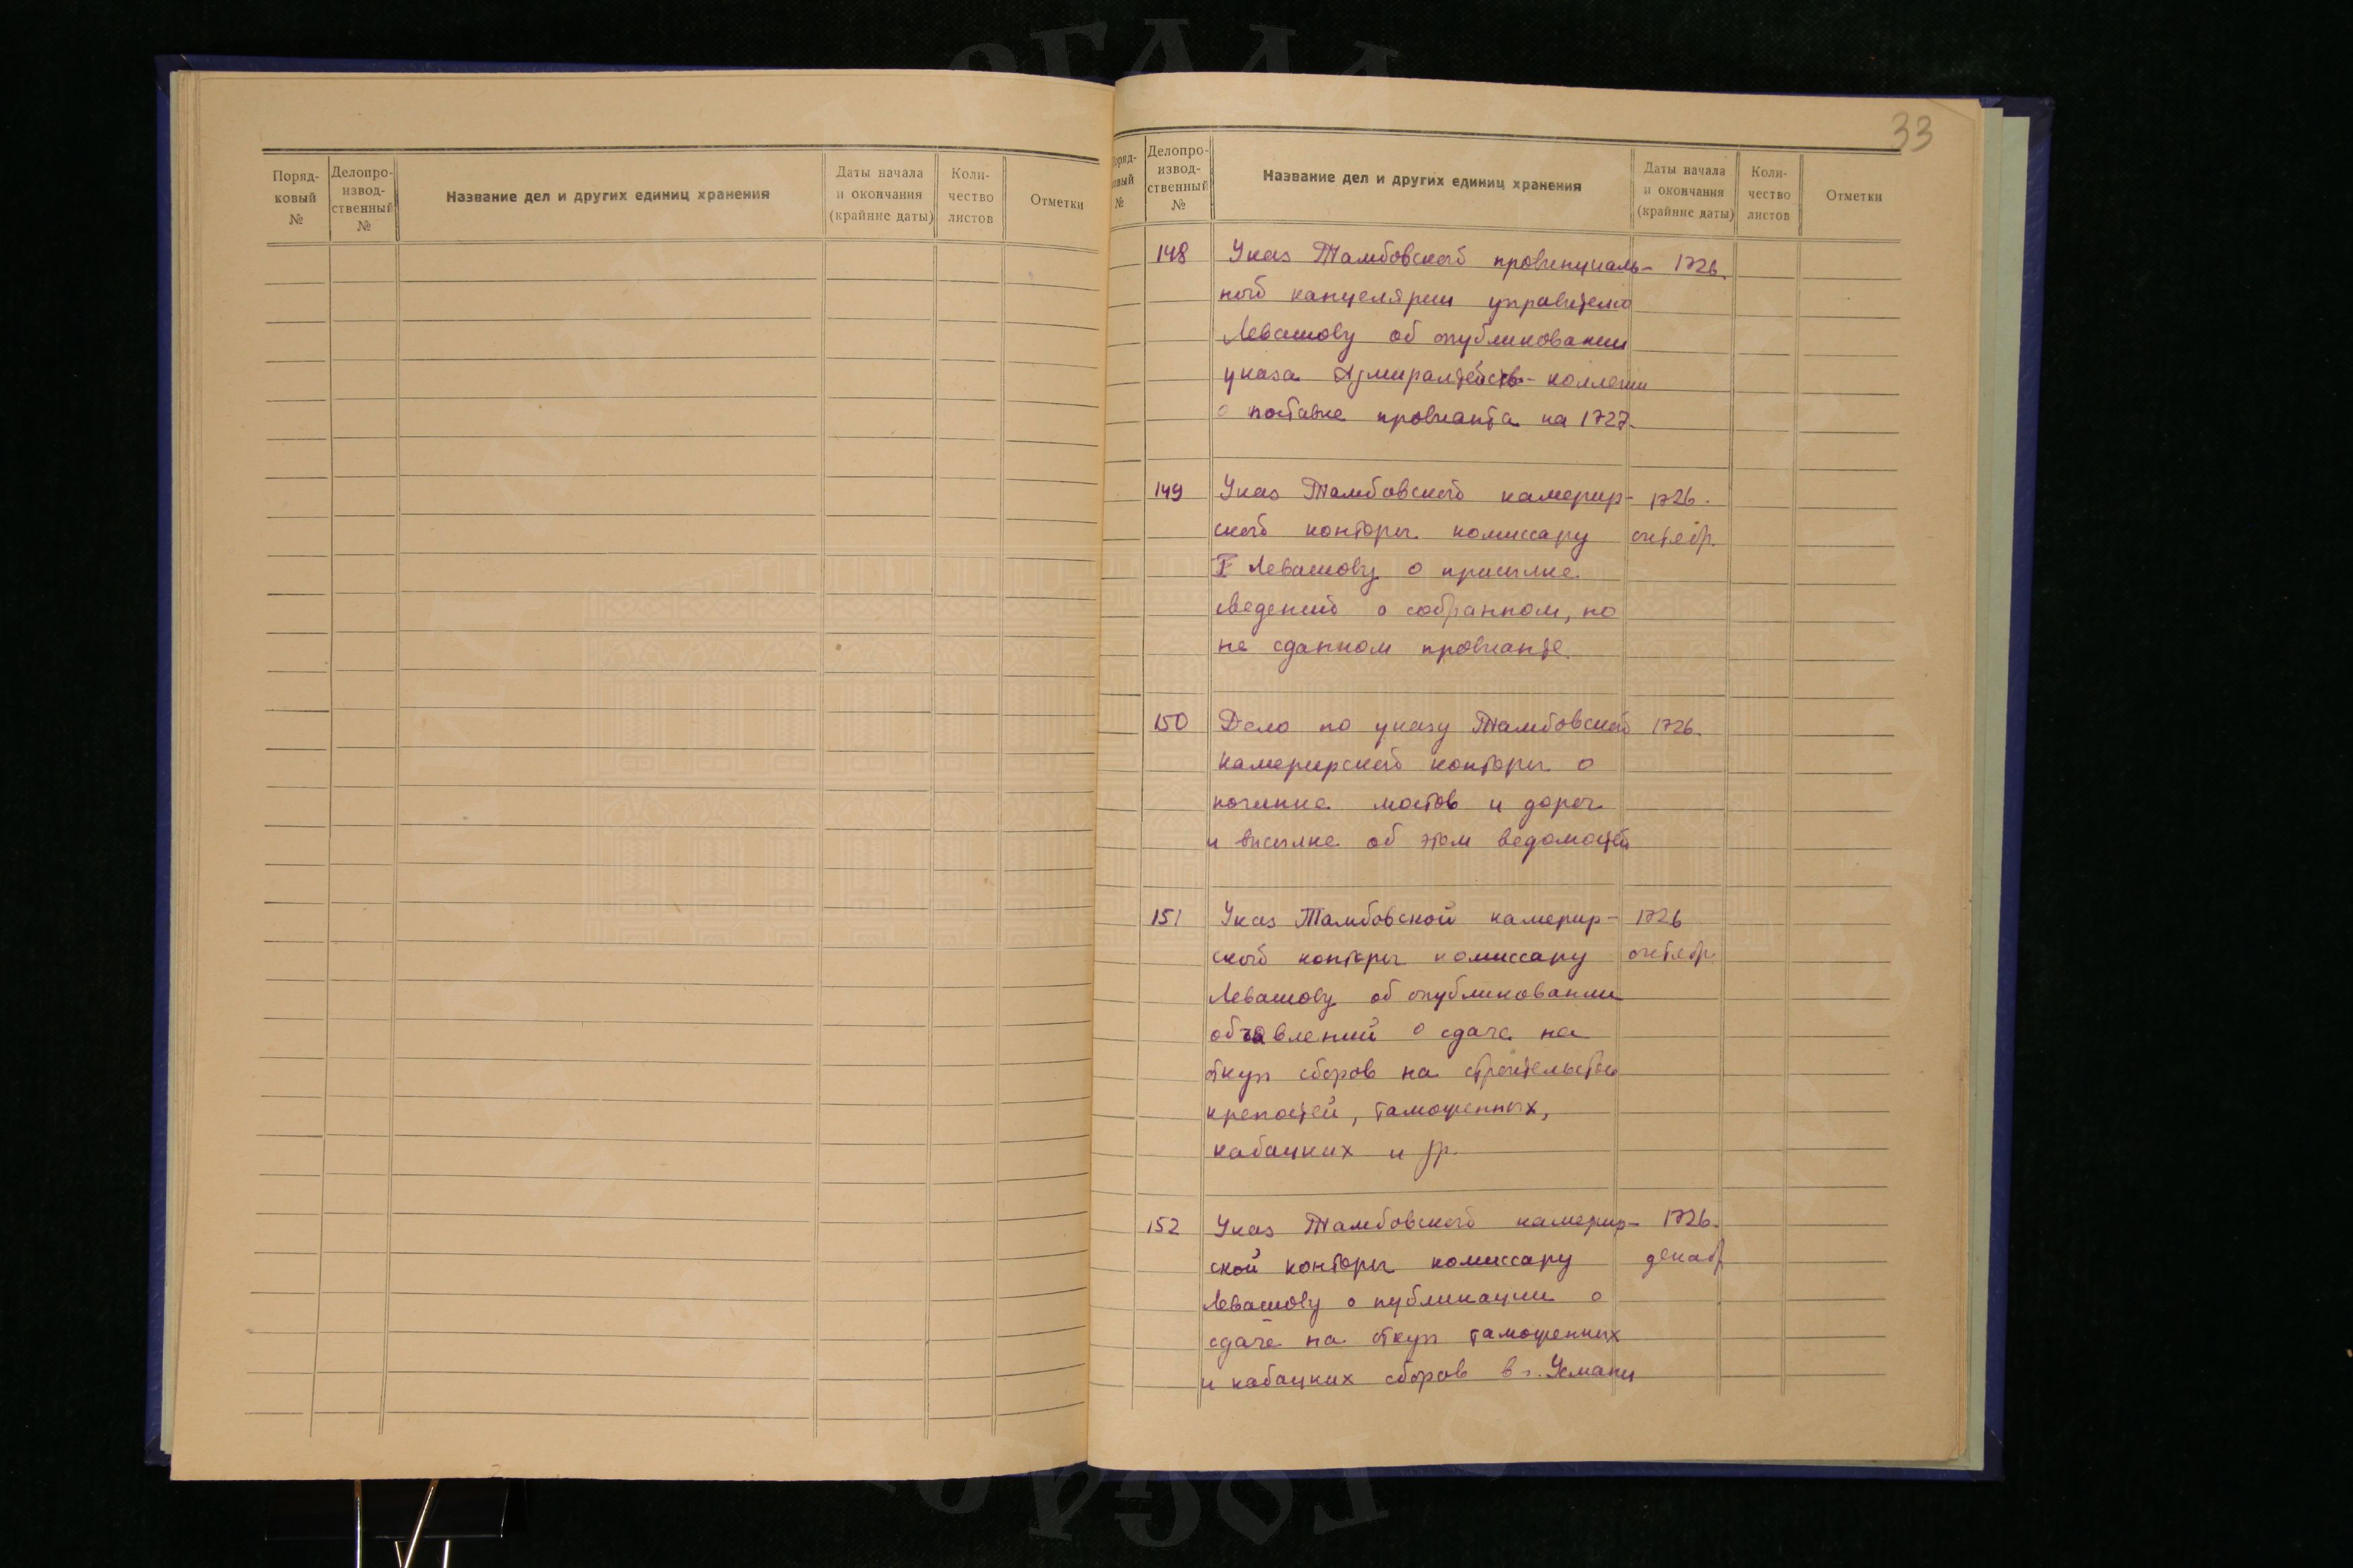 Поряд-
ковый
№
Делопро-
извод-
ственный
№
Название дел и других единиц хранения
Даты начала
и окончания
(крайние даты)
Коли-
чество
листов
Отметки
33
Поряд-
ковый
№
Делопро-
извод-
ственный
№
Название дел и других единиц хранения
Даты начала
и окончания
(крайние даты)
Коли-
чество
листов
Отметки
148 Указ Тамбовской провинциаль- 1726.
ной канцелярии управителю
Левашову об опубликовании
указа Адмиралтейств-коллегии
о поставке провианта на 1727.
149 Указ Тамбовской камерир- 1726.
ской конторы комиссару октябр.
Левашову о присылке
сведений о собранном, но
не сданном провианте.
150 Дело по указу Тамбовской 1726.
камерирской конторы о
починке мостов и дорог
и высылке об этом ведомостей
151 Указ Тамбовской камерир- 1726
ской конторы комиссару октябр.
Левашову об опубликовании
объявлений о сдаче на
откуп сборов на строительство
крепостей, таможенных,
кабацких и др.
152 Указ Тамбовской камерир- 1726.
ской конторы комиссару декабр
Левашову о публикации о
сдаче на откуп таможенных
и кабацких сборов в г. Усмани